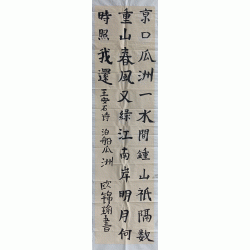 京口瓜洲一水間鍾山衹隔數
重山春風又綠江南岸明月何
時照我還 王安石詩 泊船瓜洲 欧錦瑜書